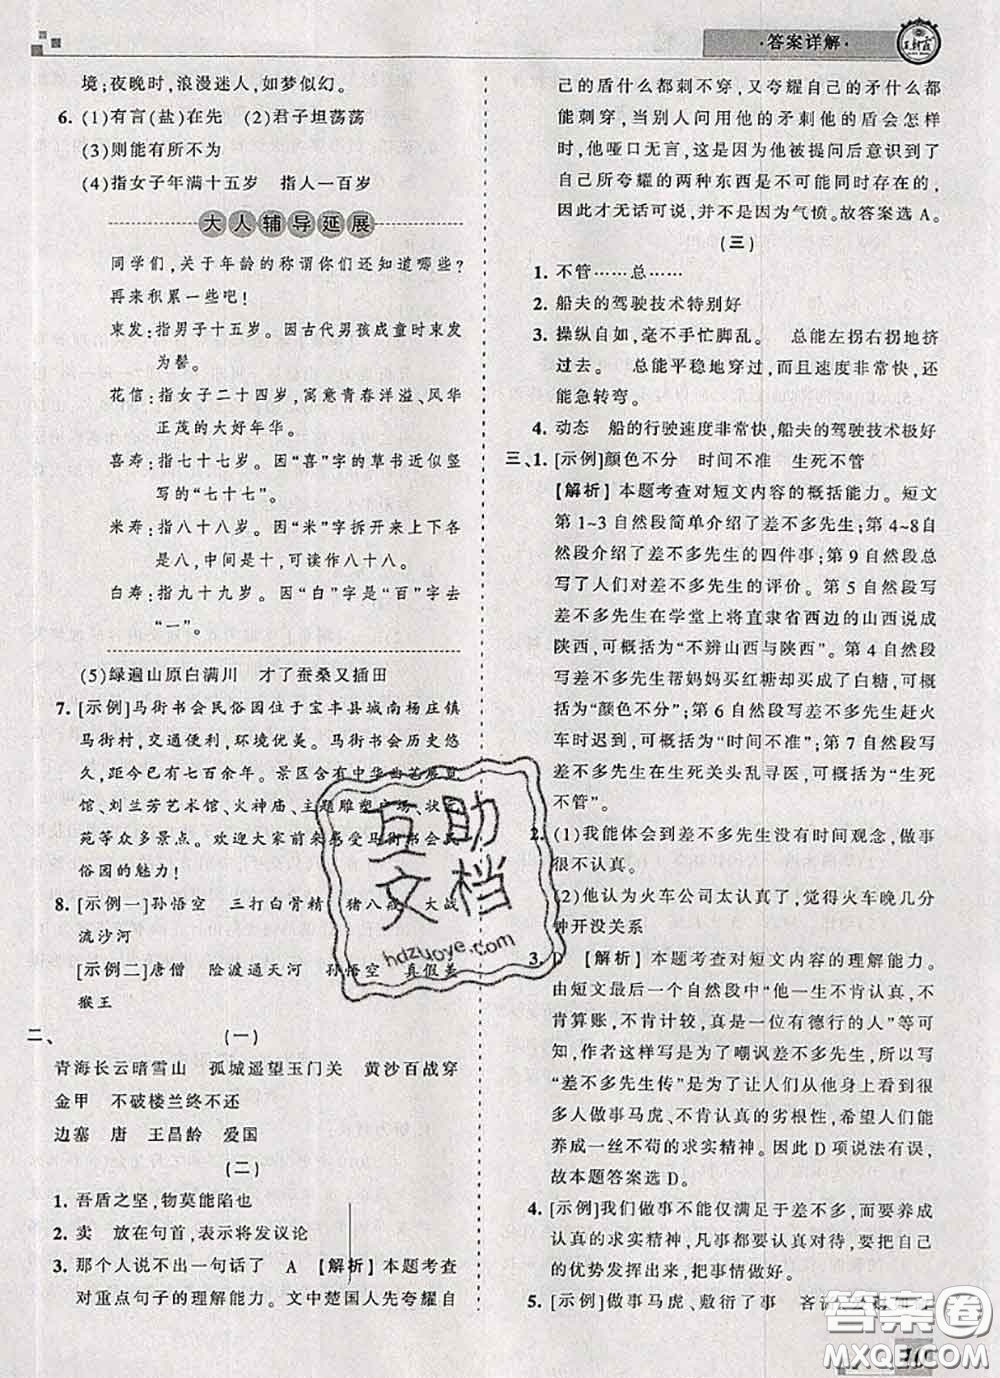 ·答案详解·
王朝霞
境;夜晚时,浪漫迷人,如梦似幻。
6. (1)有言(盐)在先 (2)君子坦荡荡
(3)则能有所不为
(4)指女子年满十五岁 指人一百岁
大人辅导延展
同学们,关于年龄的称谓你们还知道哪些?
再来积累一些吧!
束发:指男子十五岁。因古代男孩成童时束发
为髻。
花信:指女子二十四岁,寓意青春洋溢、风华
正茂的大好年华。
喜寿:指七十七岁。因“喜”字的草书近似竖
写的“七十七”。
米寿:指八十八岁。因“米”字拆开来上下各
是八,中间是十,可读作八十八。
白寿:指九十九岁。因“白”字是“百”字去
“一”。
(5)绿遍山原白满川 才了蚕桑又插田
7. [示例]马街书会民俗园位于宝丰县城南杨庄镇
马街村,交通便利,环境优美。马街书会历史悠
久,距今已有七百余年。景区含有中华曲艺展览
馆、刘兰芳艺术馆、火神庙、主题雕塑广场、状元
苑等众多景点。欢迎大家前来感受马街书会民
俗园的魅力!
8. [示例一]孙悟空 三打白骨精 猪八戒 大战
流沙河
[示例二]唐僧 险渡通天河 孙悟空 真假美
猴王
二、 (一)
青海长云暗雪山 孤城遥望玉门关 黄沙百战穿
金甲 不破楼兰终不还
边塞 唐 王昌龄 爱国
(二)
1. 吾盾之坚,物莫能陷也
2. 卖 放在句首,表示将发议论
3. 那个人说不出一句话了 A [解析]本题考查
对重点句子的理解能力。文中楚国人先夸耀自
己的盾什么都刺不穿,又夸耀自己的矛什么都
能刺穿,当别人问用他的矛刺他的盾会怎样
时,他哑口无言,这是因为他被提问后意识到了
自己所夸耀的两种东西是不可能同时存在的,
因此才无话可说,并不是因为气愤。故答案选A。
(三)
1. 不管……总……
2. 船夫的驾驶技术特别好
3. 操纵自如,毫不手忙脚乱。 总能左拐右拐地挤
过去。 总能平稳地穿过,而且速度非常快,还
能急转弯。
4. 动态 船的行驶速度非常快,船夫的驾驶技术极好
三、1. [示例]颜色不分 时间不准 生死不管
[解析]本题考查对短文内容的概括能力。短文
第1~3自然段简单介绍了差不多先生;第4~8自
然段写了差不多先生的四件事;第9自然段总
写了人们对差不多先生的评价。第5自然段写
差不多先生在学堂上将直隶省西边的山西说成
陕西,可概括为“不辨山西与陕西”。第4自然
段写差不多先生帮妈妈买红糖却买成了白糖,可
概括为“颜色不分”;第6自然段写差不多先生赶火
车时迟到,可概括为“时间不准”;第7自然段写
差不多先生在生死关头乱寻医,可概括为“生死
不管”。
2. (1)我能体会到差不多先生没有时间观念,做事
很不认真。
(2)他认为火车公司太认真了,觉得火车晚几分
钟开没关系
3. D [解析]本题考查对短文内容的理解能力。
由短文最后一个自然段中“他一生不肯认真,不
肯算账,不肯计较,真是一位有德行的人”等可
知,作者这样写是为了嘲讽差不多先生。所以,
写“差不多先生传”是为了让人们从他身上看到
很多人做事马虎、不肯认真的劣根性,希望人们能
养成一丝不苟的求实精神。因此D项说法有误,
故本题答案选D。
4. [示例]我们做事不能仅满足于差不多,而要有
的求实精神,凡事都要认真对待,要把自己
的优势发挥出来,把事情做好。
5. [示例]做事马虎、敷衍了事
互助
文档
hdzuoye.com
答案圈
MXQE.COM